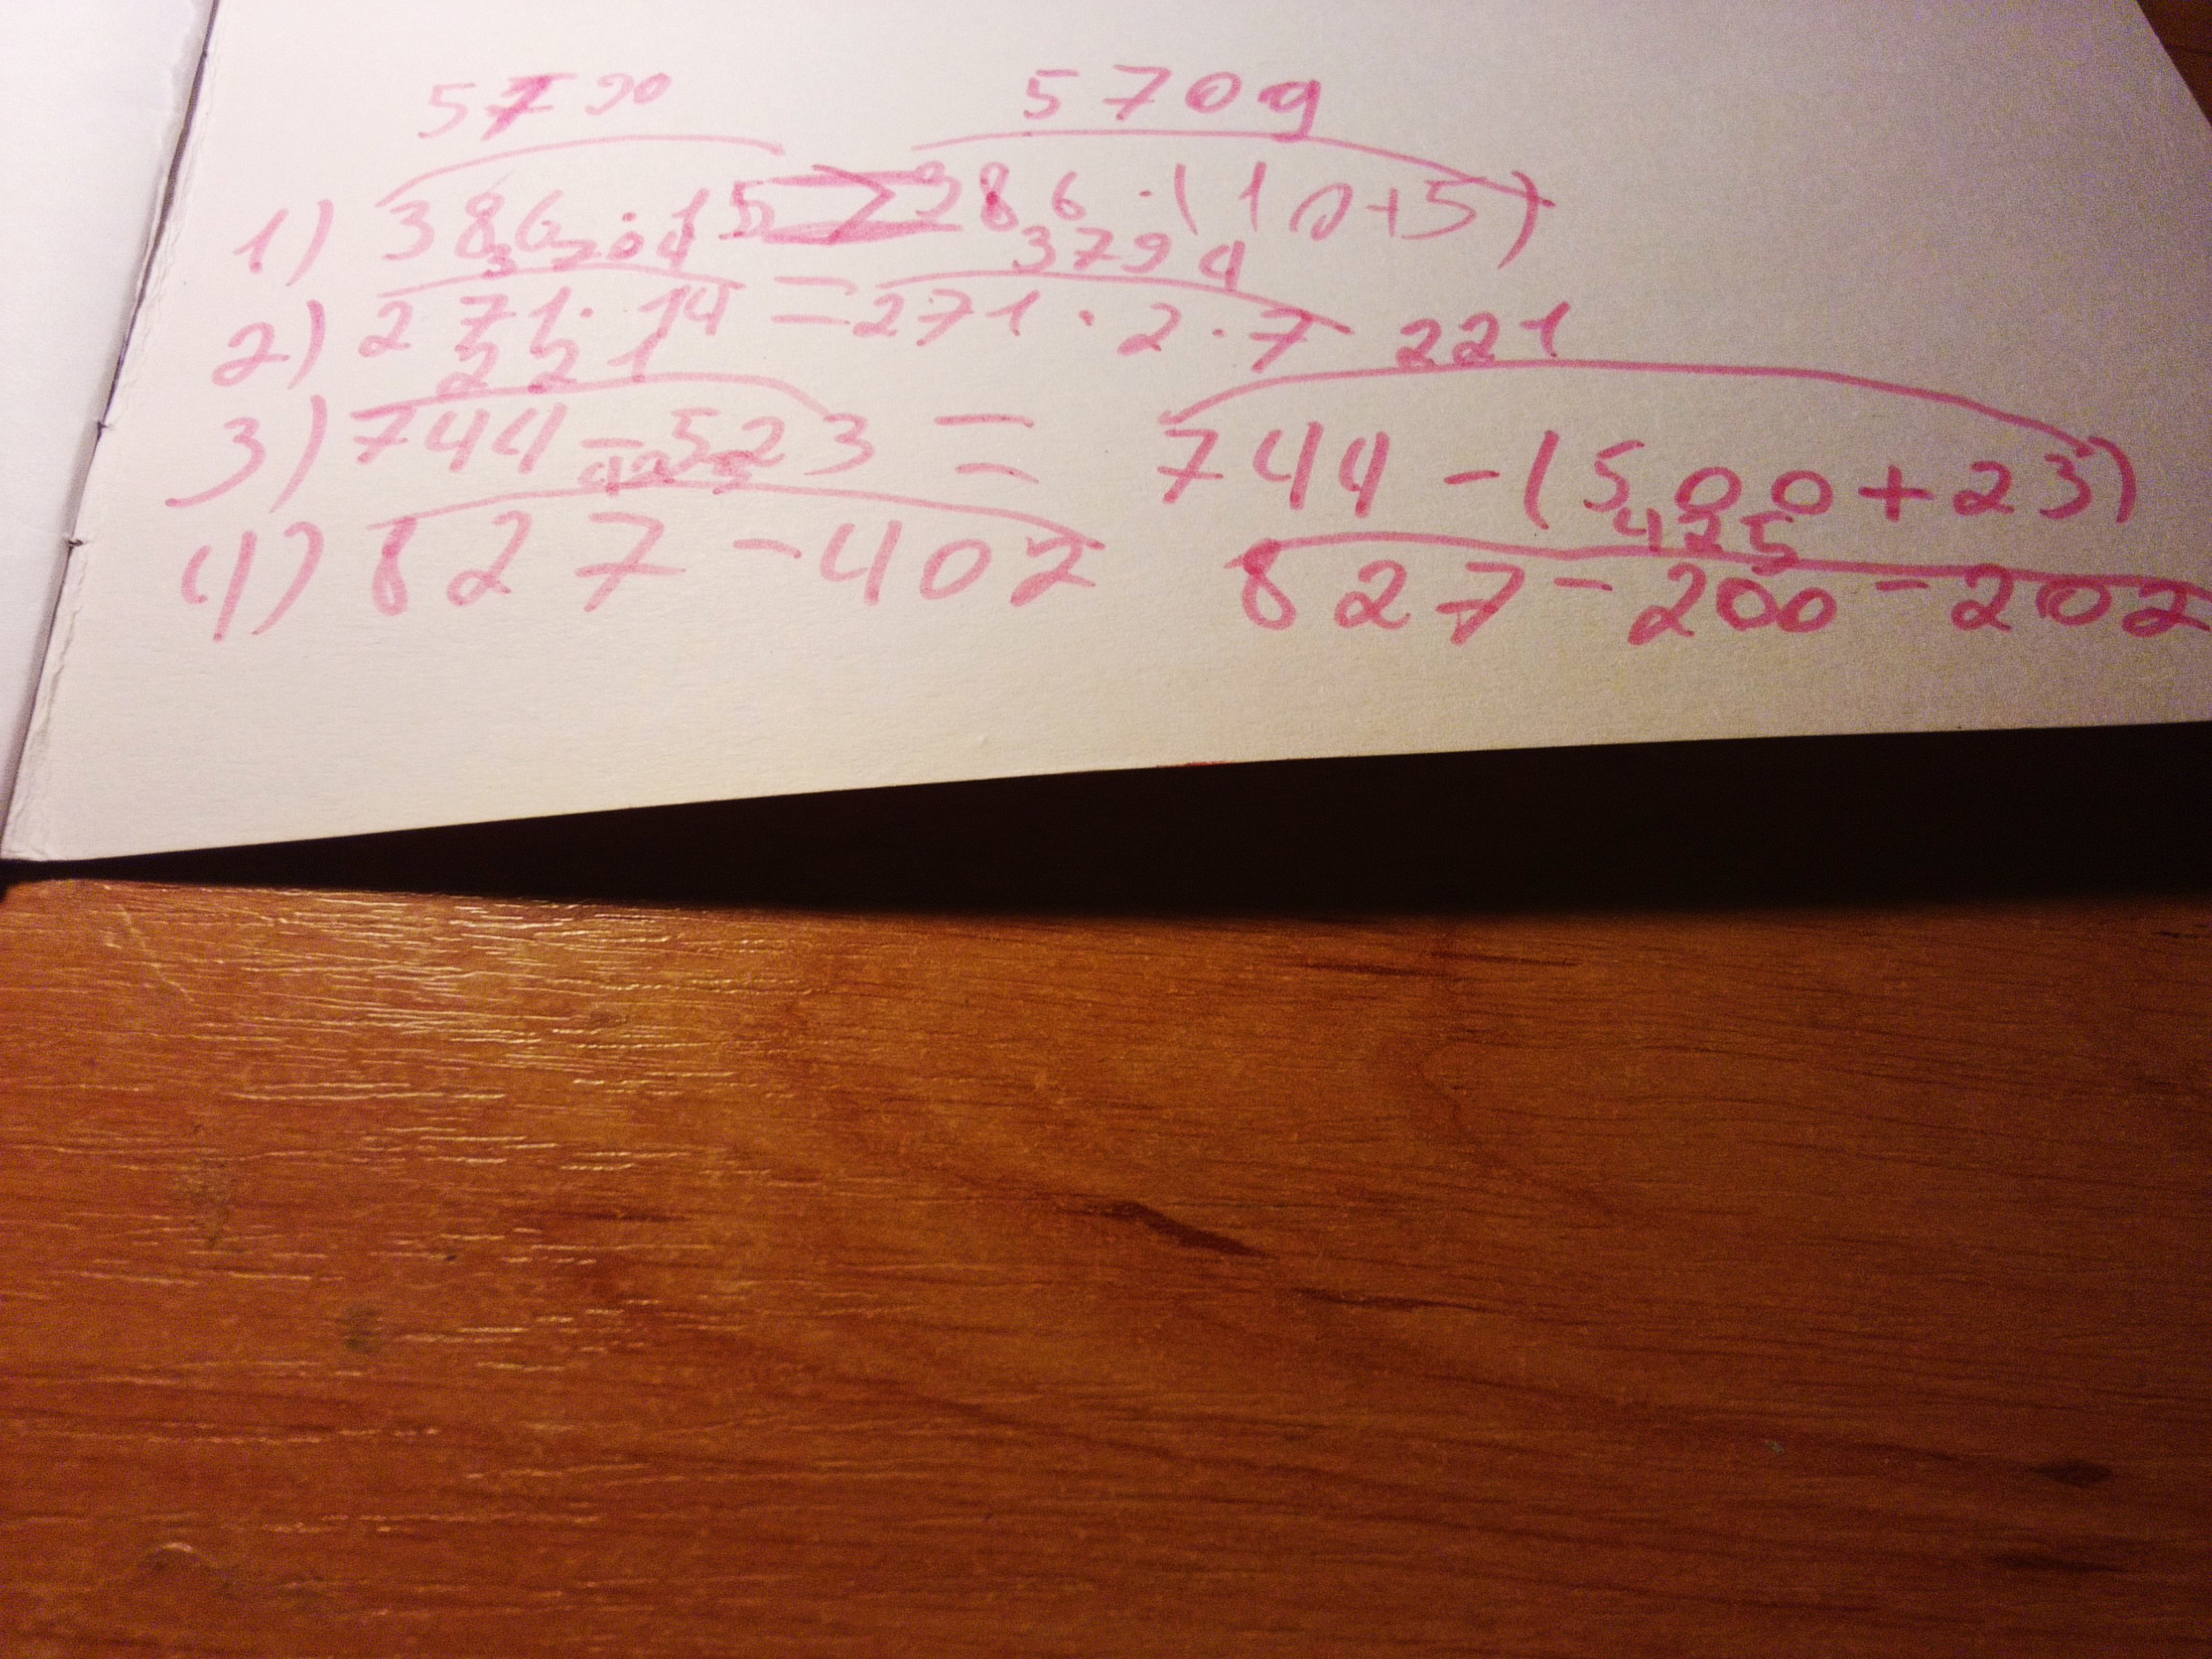 5790 5709
1) 386 · 15 = 386 · (10+5)
3794
2) 271 · 14 = 271 · 2 · 7
221 221
3) 744 - 523 = 744 - (500+23)
425 425
4) 827 - 402 827 - 200 - 202